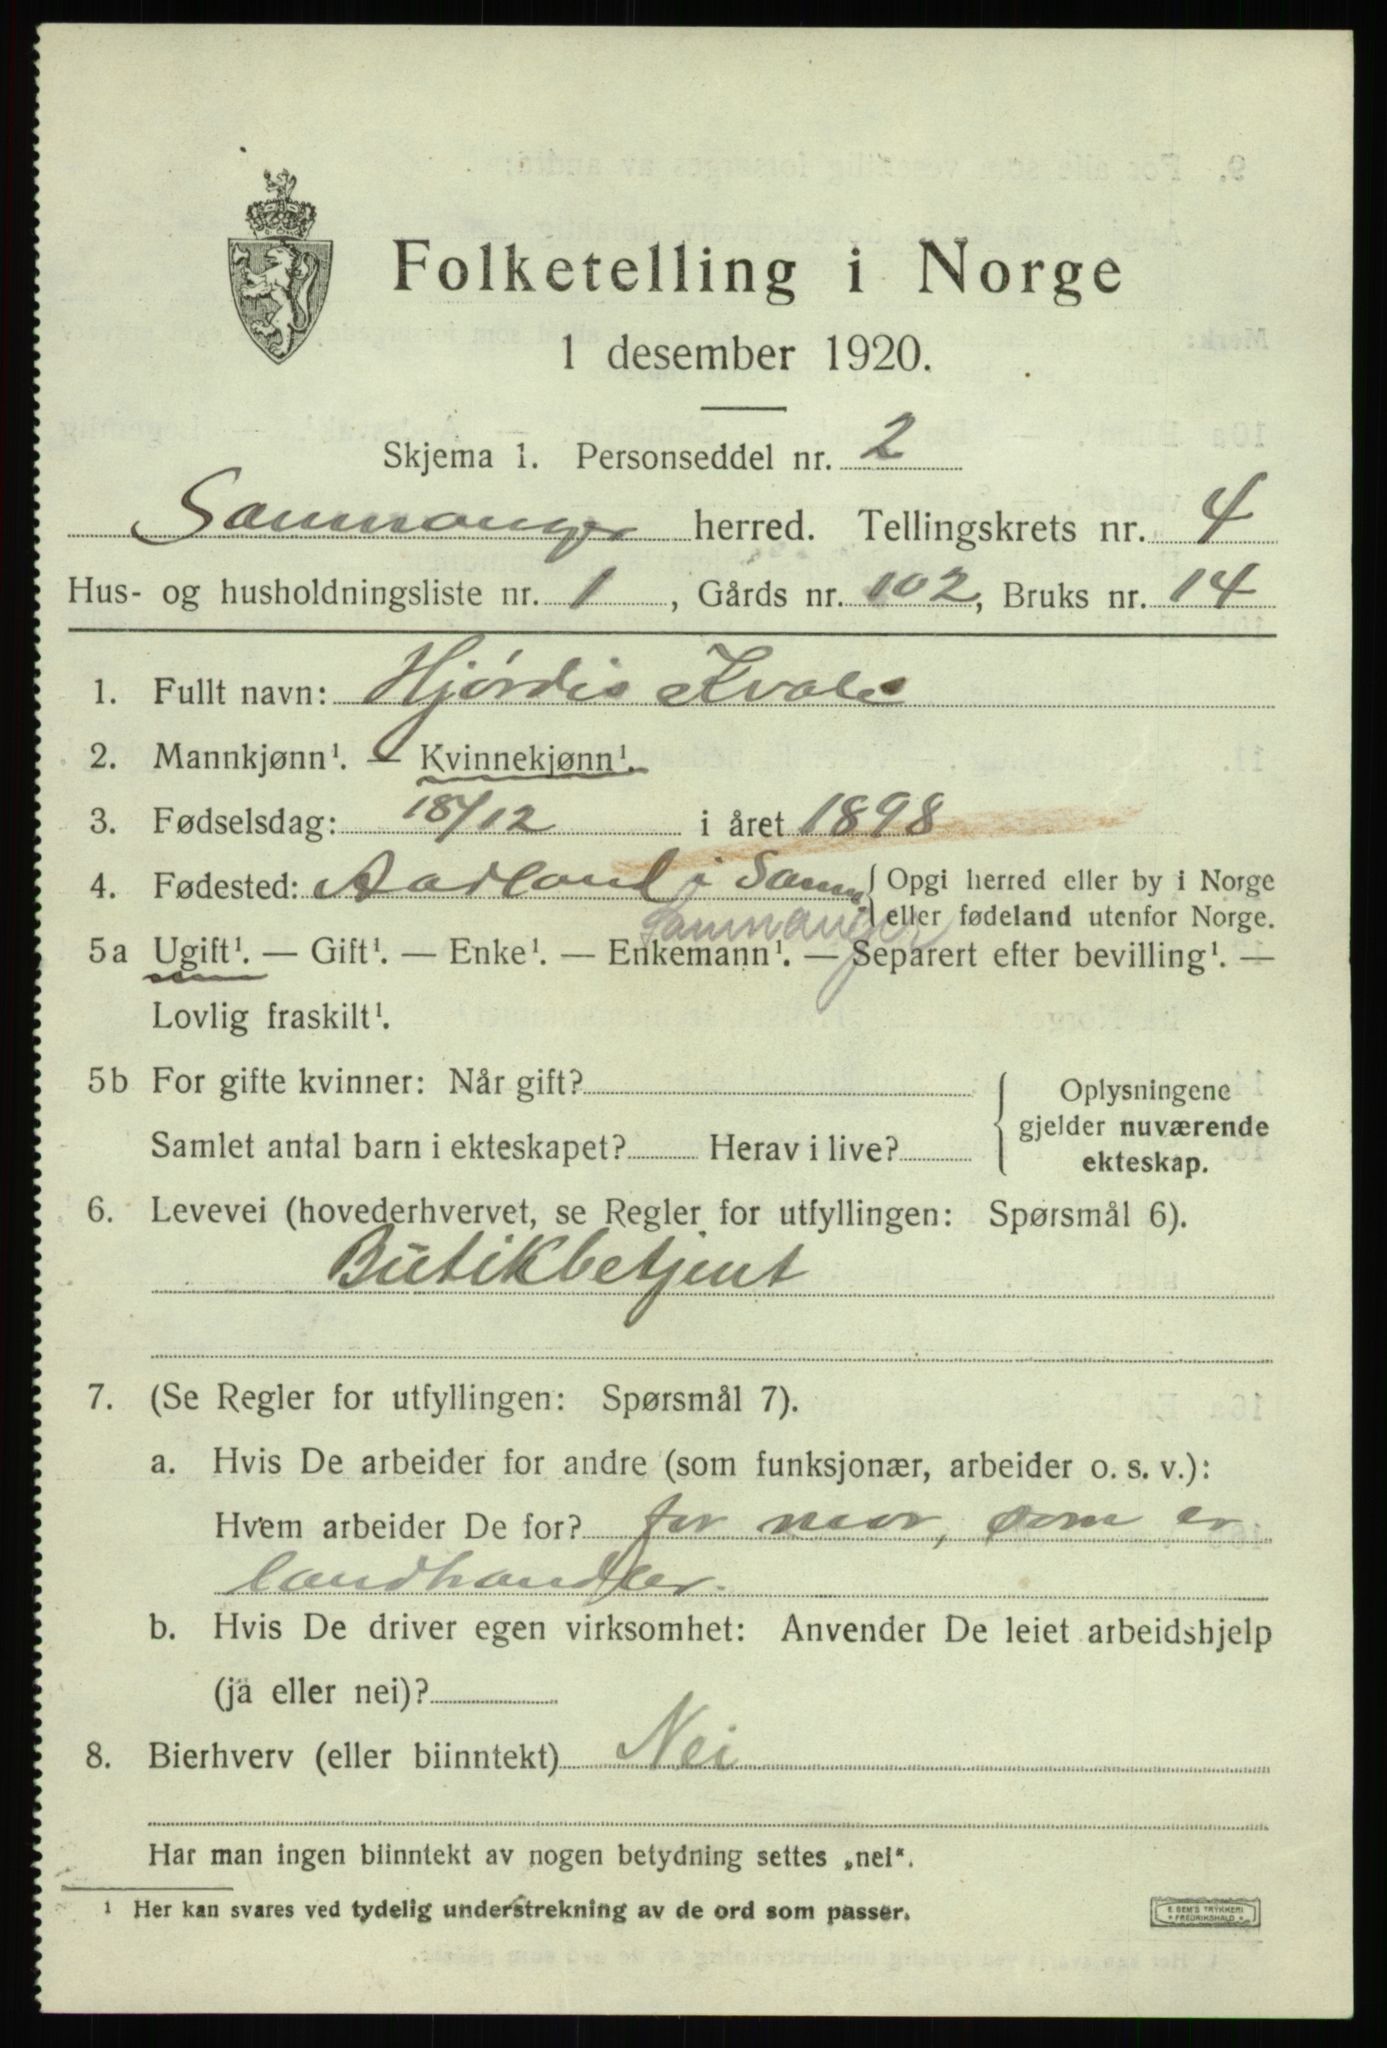 Folketelling i Norge
1 desember 1920.
Skjema 1. Personseddel nr. 2
Samnanger herred. Tellingskrets nr. 4
Hus- og husholdningsliste nr. 1, Gårds nr. 102, Bruks nr. 14
1. Fullt navn: Hjørdis Kvale
2. Mannkjønn¹. — Kvinnekjønn¹.
3. Fødselsdag: 18/12 i året 1898
4. Fødested: Aadland i Samn. Opgi herred eller by i Norge
Samnanger eller fødeland utenfor Norge.
5a Ugift¹. — Gift¹. — Enke¹. — Enkemann¹. — Separert efter bevilling¹. —
Lovlig fraskilt¹.
5b For gifte kvinner: Når gift? Oplysningene
gjelder nuværende
Samlet antal barn i ekteskapet? Herav i live? ekteskap.
6. Levevei (hovederhvervet, se Regler for utfyllingen: Spørsmål 6).
Butikbetjent
7. (Se Regler for utfyllingen: Spørsmål 7).
a. Hvis De arbeider for andre (som funksjonær, arbeider o. s. v.):
Hvem arbeider De for? for mor, som er
landhandler.
b. Hvis De driver egen virksomhet: Anvender De leiet arbeidshjelp
(ja eller nei)?
8. Bierhverv (eller biinntekt) Nei
Har man ingen biinntekt av nogen betydning settes „nei“.
¹ Her kan svares ved tydelig understrekning av de ord som passer.
E SEM'S TRYKKERI
FREDRIKSHALD